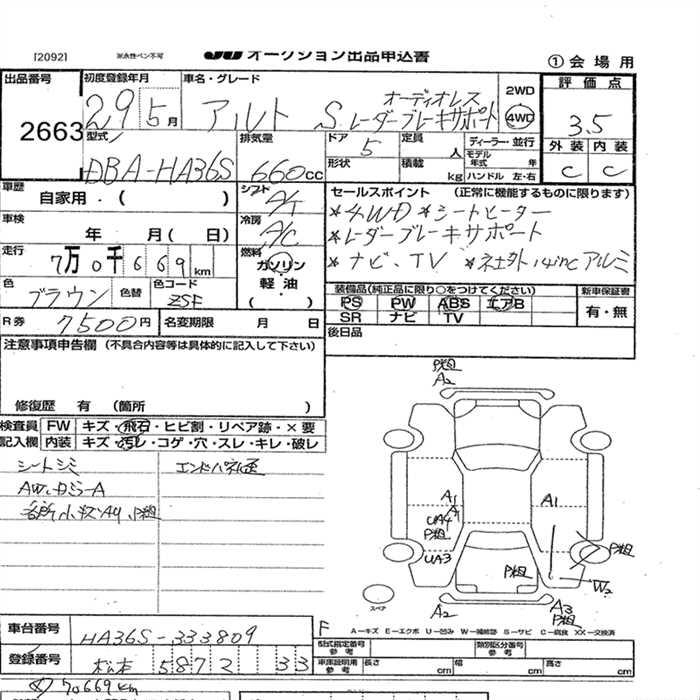 [2092] ※永性ペン不可 JU オークション出品申込書 ①会場用
出品番号 初度登録年月 車名・グレード 評価点
2663 29 5月 アルト S オーディオレス レーダーブレーキサポート 2WD 4WD 3.5
型式 排気量 ドア 定員 ディーラー・並行 外装 内装
DBA-HA36S 660cc 5 人 モデル年式 年 C C
形状 積載 kg ハンドル 左・右
車歴 自家用・( ) シフト A/T セールスポイント (正常に機能するものに限ります)
車検 年 月( 日) 冷房 A/C *4WD *シートヒーター
*レーダーブレーキサポート
走行 7万0千669km 燃料 ガソリン ナビ、TV *社外14incアルミ
色 ブラウン 色替 色コード ZSF 軽油・( )
装備品(純正品に限り○をつけてください) 新車保証書
PS PW ABS エアB 有・無
SR ナビ TV
R券 7500円 名変期限 月 日 後日品
注意事項申告欄 (不具合内容等は具体的に記入して下さい)
修復歴 有 (箇所 )
検査員 FW キズ・飛石・ヒビ割・リペア跡・×要
記入欄 内装 キズ・汚レ・コゲ・穴・スレ・キレ・破レ
シートシミ エンドパネル歪
AW.ロミラーA
各所小キズ
P粗
A2
A1 A1
A1
UA4
P粗 P粗
UA3 P粗
W2
A2 A3
P粗
スペア
車台番号 HA36S-333809 F A-キズ E-エクボ U-凹み W-補修跡 S-サビ C-腐食 XX-交換済
登録番号 松本 587 2 33 型式指定番号 参考 類別区分番号 参考
車庫証明用 参考 長さ cm 幅 cm 高さ cm
70669km